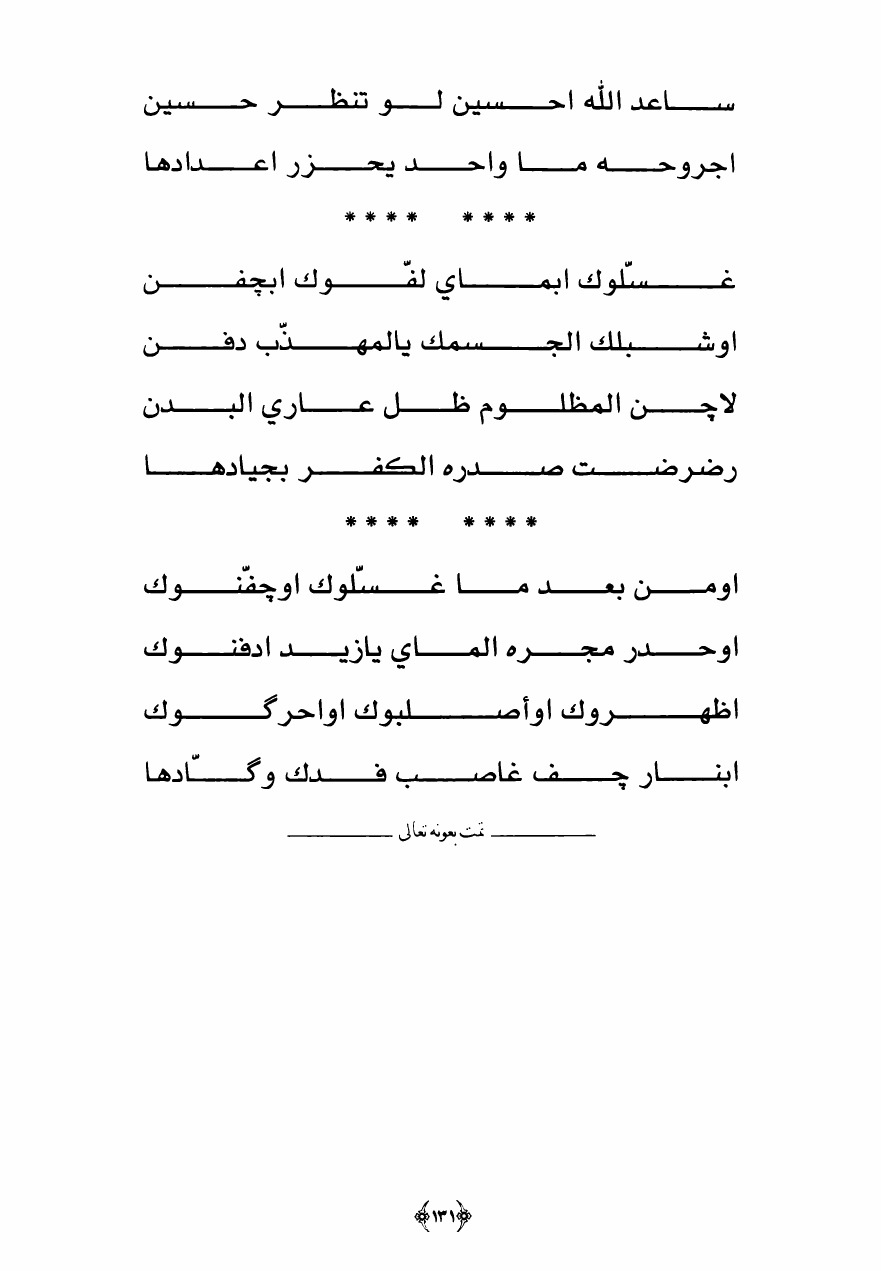 ساعد الله احسين لو تنظر حسين
اجروحه ما واحد يحزر اعدادها
**** ****
غسلّوك ابماي لفّوك ابچفن
اوشبلك الجسمك يالمهذّب دفن
لاچن المظلوم ظل عاري البدن
رضرضت صدره الكفر بجيادها
**** ****
اومن بعد ما غسلّوك اوچفّنوك
اوحدر مجره الماي يازيد ادفنوك
اظهروك اوأصلبوك اواحرگوك
ابنار چف غاصب فدك وگّادها
تمّت بعونه تعالى
﴿١٣١﴾